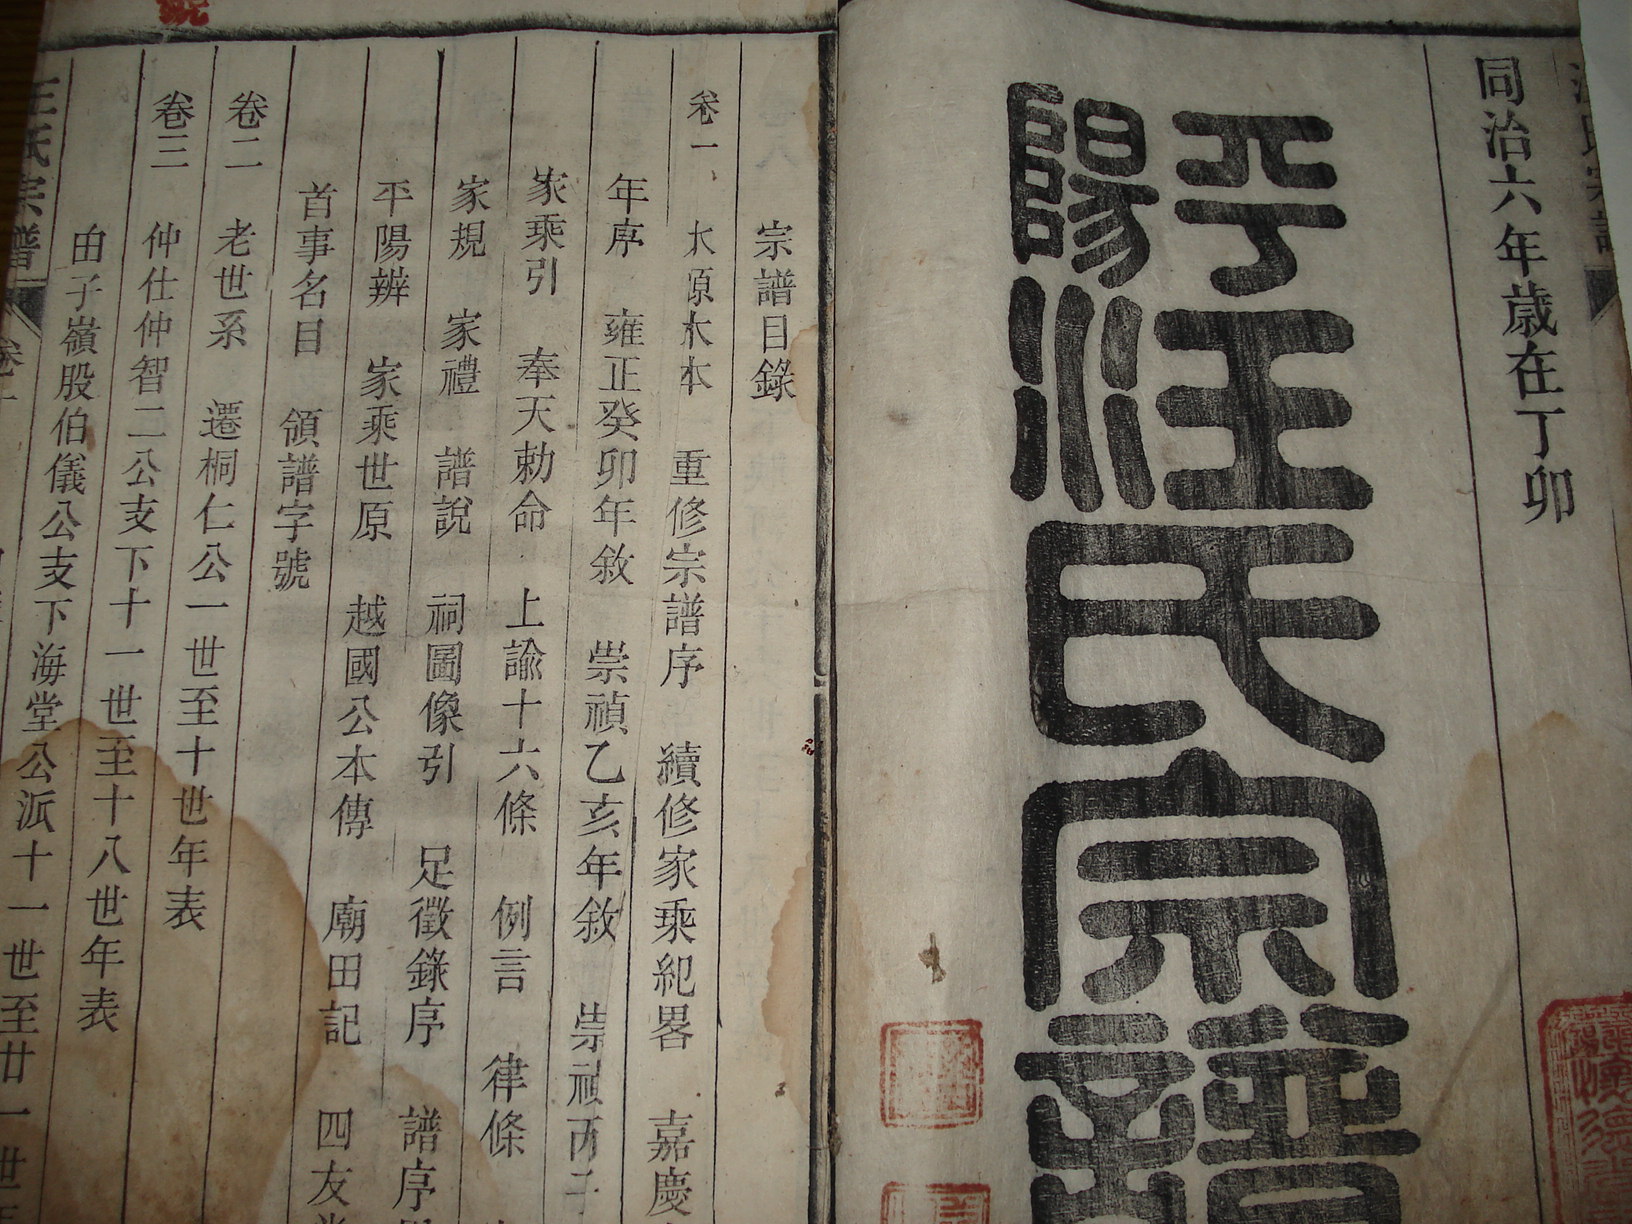 同治六年歲在丁卯
平陽汪氏宗譜
宗譜目錄
卷一 水源木本 重修宗譜序 續修家乘紀畧 嘉慶
年序 雍正癸卯年敘 崇禎乙亥年敘 崇禎丙子
家乘引 奉天勅命 上諭十六條 例言 律條
家規 家禮 譜說 祠圖像引 足徵錄序 譜序
平陽辨 家乘世原 越國公本傳 廟田記 四友
首事名目 領譜字號
卷二 老世系 遷桐仁公一世至十世年表
卷三 仲仕仲智二公支下十一世至十八世年表
由子嶺股伯儀公支下海堂公派十一世至廿一世
氏宗譜